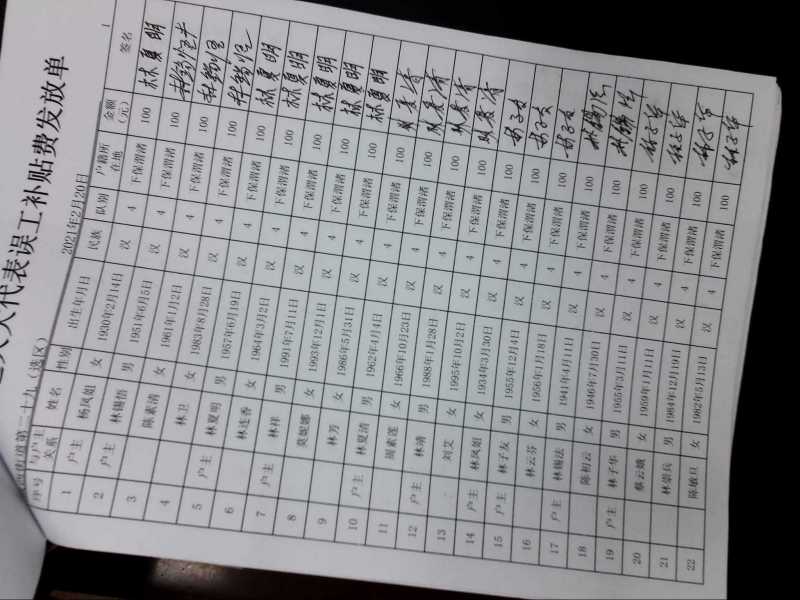 人大代表误工补贴费发放单
街道第二十九（选区） 2021年2月20日
序号 与户主关系 姓名 性别 出生年月日 民族 队别 户籍所在地 金额（元） 签名
1 户主 杨凤姐 女 1930年2月14日 汉 4 下保渭渚 100 林夏明
2 户主 林锡悟 男 1951年6月5日 汉 4 下保渭渚 100
3 陈素清 女 1961年1月2日 汉 4 下保渭渚 100
4 林卫 女 1983年8月28日 汉 4 下保渭渚 100
5 户主 林夏明 男 1957年6月19日 汉 4 下保渭渚 100 林夏明
6 林连香 女 1964年3月2日 汉 4 下保渭渚 100 林夏明
7 户主 林祥 男 1991年7月11日 汉 4 下保渭渚 100 林夏明
8 莫妮娜 女 1993年12月1日 汉 4 下保渭渚 100 林夏明
9 林芳 女 1986年5月31日 汉 4 下保渭渚 100 林夏明
10 户主 林夏清 男 1962年4月4日 汉 4 下保渭渚 100
11 周素莲 女 1966年10月23日 汉 4 下保渭渚 100
12 户主 林靖 男 1988年1月28日 汉 4 下保渭渚 100
13 刘艾 女 1995年10月2日 汉 4 下保渭渚 100
14 户主 林凤姐 女 1934年3月30日 汉 4 下保渭渚 100
15 户主 林子友 男 1955年12月4日 汉 4 下保渭渚 100
16 林云芬 女 1956年1月18日 汉 4 下保渭渚 100
17 户主 林锡法 男 1941年4月11日 汉 4 下保渭渚 100
18 陈初云 女 1946年7月30日 汉 4 下保渭渚 100
19 户主 林子华 男 1955年3月11日 汉 4 下保渭渚 100 林子华
20 蔡云娥 女 1959年1月11日 汉 4 下保渭渚 100 林子华
21 林崇兵 男 1984年12月19日 汉 4 下保渭渚 100 林子华
22 陈敏旦 女 1982年5月13日 汉 4 下保渭渚 100 林子华
1